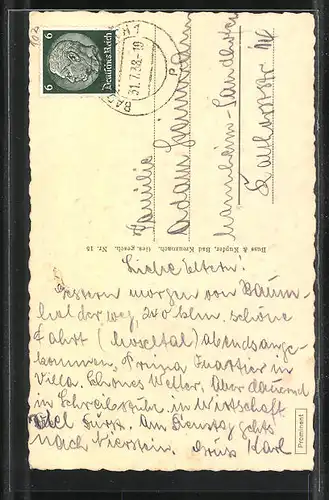 6 Deutsches Reich 6
31.7.38.-19
Familie
Adam
Mannheim-Sandhofen
Buss & Kupfer, Bad Kreuznach. Ges. gesch. Nr. 15
Liebe Eltern!
Gestern morgen von
der weg, 240 klm. schöne
Fahrt (Moseltal) abends ange-
kommen, Prima Quartier in
Villa. Schönes Wetter. Aber dauernd
in Schreibstube in Wirtschaft
viel Durst. Am Dienstag gehts
nach Nierstein. Gruss Karl
Prominent